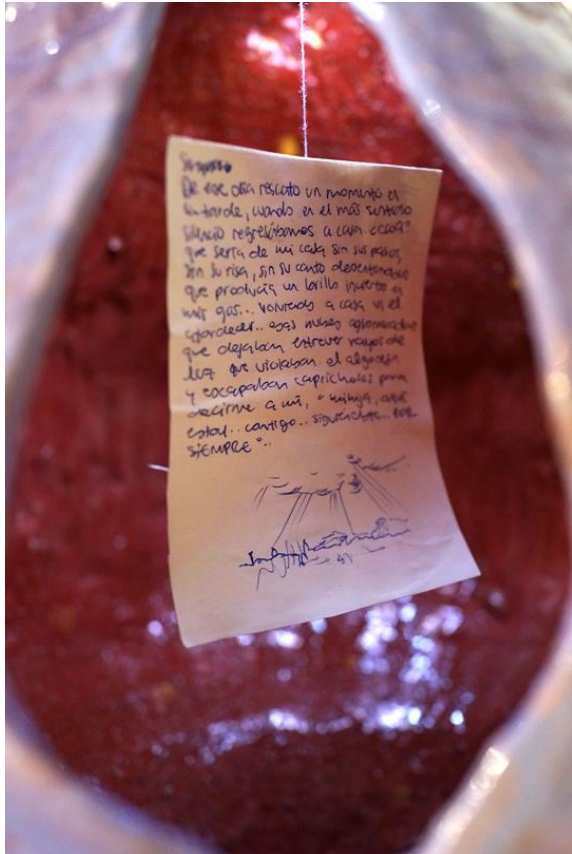 De ese día rescato un momento en
la tarde, cuando en el más
silencio regresábamos a casa
que sería de mi casa sin sus pasos,
sin su risa, sin su canto
que producía un brillo incierto en
mis.. volviendo a casa vi el
atardecer.. esas nubes aglomeradas
que dejaban entrever rayos de
luz que violaban el algodón
y escapaban caprichosos para
decirme a mi, " mi hija, aquí
estoy.. contigo... siguiéndote.. POR
SIEMPRE"..